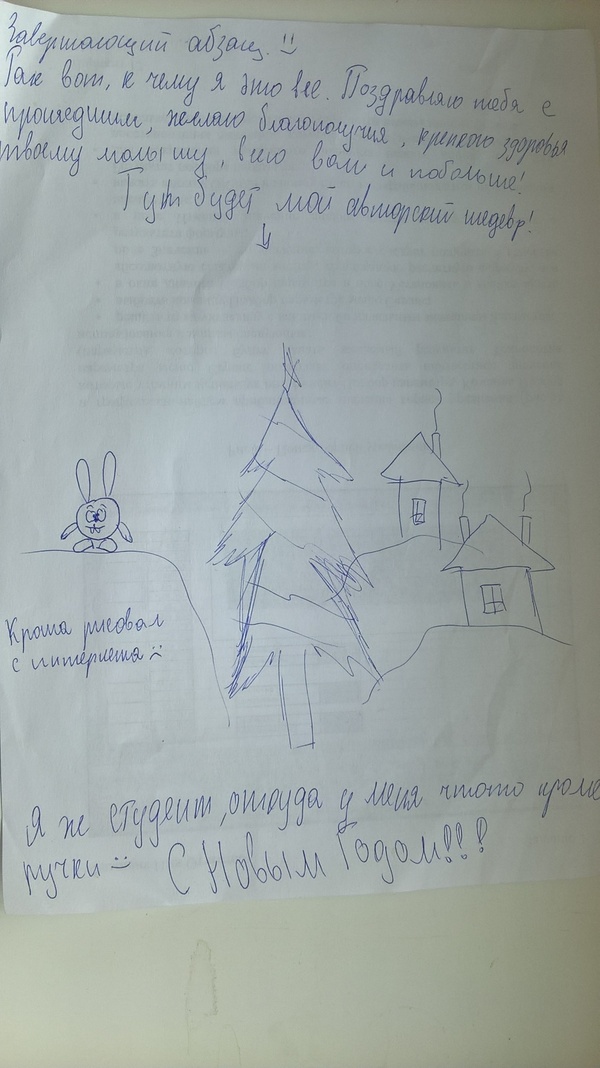 Завершающий абзац. !!
Так вот, к чему я это все. Поздравляю тебя с
прошедшим, желаю благополучия, крепкого здоровья
твоему малышу, всего вам и побольше!
Тут будет мой авторский шедевр!
Кроша рисовал
с интернета :(
Я же студент, откуда у меня что то кроме
ручки :)
С Новым Годом!!!